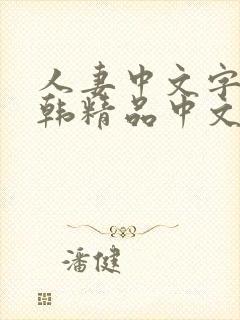 人妻中文字
韩精品中文
潘健